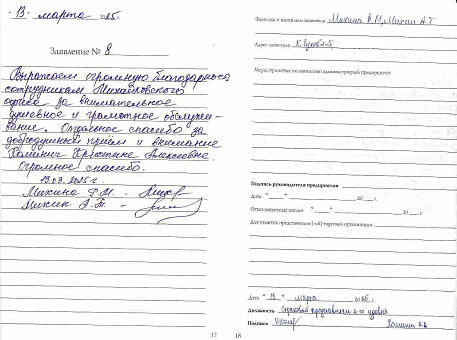 "13" марта 2025г.
Заявление № 8
Выражаем огромную благодарность
сотрудникам Михайловского
офиса за внимательное
душевное и грамотное обслужи-
вание. Огромное спасибо за
добродушный приём и внимание
Кристине Алексеевне.
Огромное спасибо.
13.03.2025г.
Микина
Микин А.Т. -
17
Фамилия и инициалы заявителя Микина Микин А.Т
Адрес заявителя
Меры, принятые по заявлению администрацией предприятия
Подпись руководителя предприятия
Дата " " 20 г.
Ответ заявителю послан " " 20 г.
Для отметок представителя (-ей) торговой организации
Дата "13" марта 2025г.
Должность страховой представитель 2-го уровня
Подпись
18